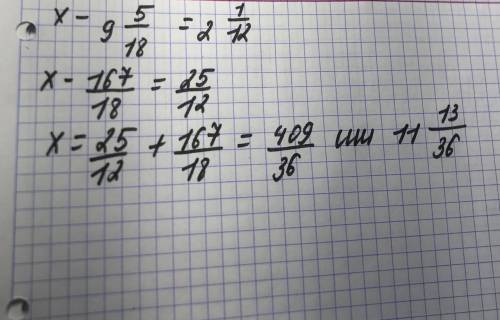 x - 9 5/18 = 2 1/12
x - 167/18 = 25/12
x = 25/12 + 167/18 = 409/36 или 11 13/36